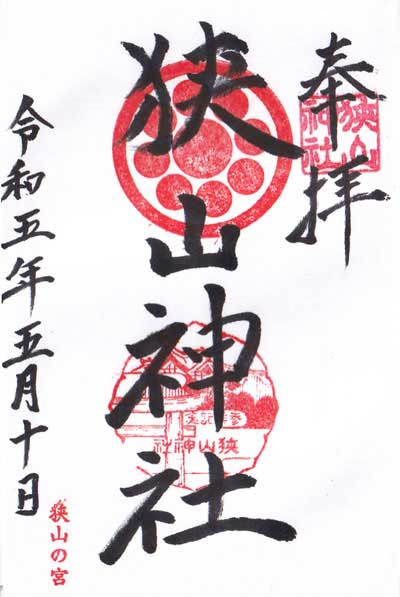 奉拝
狭山神社
狭山神社
参拝記念
狭山神社
令和五年五月十日
狭山の宮